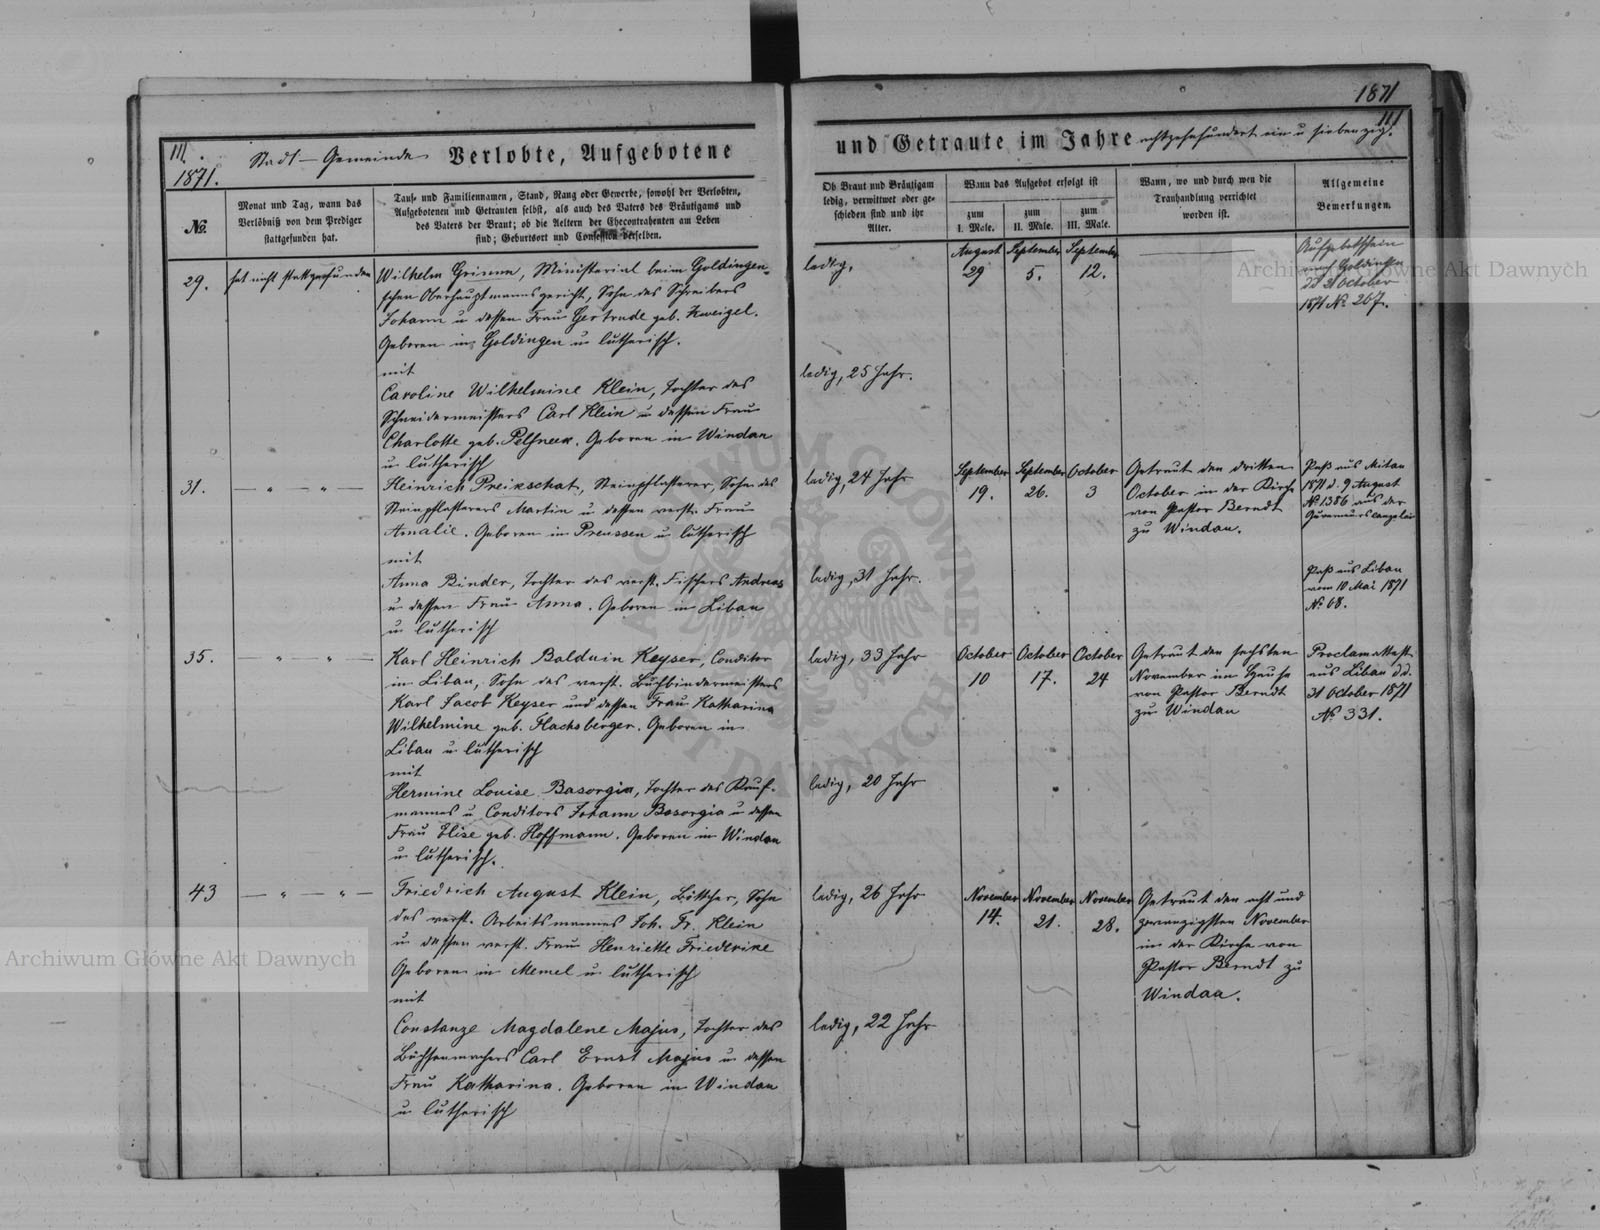 1871
III.
1871.
Stadt-Gemeinde Verlobte, Aufgebotene
№
Monat und Tag, wann das
Verlöbniß von dem Prediger
stattgefunden hat.
Tauf- und Familiennamen, Stand, Rang oder Gewerbe, sowohl der Verlobten,
Aufgebotenen und Getrauten selbst, als auch des Vaters des Bräutigams und
des Vaters der Braut; ob die Aeltern der Ehecontrahenten am Leben
sind; Geburtsort und Confession derselben.
29.
hat nicht stattgefunden
Wilhelm Grimm, Ministerial beim Goldingen-
schen Oberhauptmannsgericht, Sohn des Schreibers
Johann u dessen Frau Gertrude geb. Kweigel.
Geboren in Goldingen u lutherisch.
mit
Caroline Wilhelmine Klein, Tochter des
Schneidermeisters Carl Klein u dessen Frau
Charlotte geb. Geboren in Windau
u lutherisch
31.
— " — " —
Heinrich Preikschat, Steinpflasterer, Sohn des
Steinpflasterers Martin u dessen verst. Frau
Amalie. Geboren in Preussen u lutherisch
mit
Anna Binder, Tochter des verst. Fischers Andreas
u dessen Frau Anna. Geboren in Libau
u lutherisch
35.
— " — " —
Karl Heinrich Balduin Keyser, Conditor
in Libau, Sohn des verst. Buchbindermeisters
Karl Jacob Keyser und dessen Frau Katharina
Wilhelmine geb. Flachsberger. Geboren in
Libau u lutherisch
mit
Hermine Louise Basorgia, Tochter des Kauf-
mannes u Conditors Johann Basorgia u dessen
Frau Elise geb. Hoffmann. Geboren in Windau
u lutherisch.
43
— " — " —
Friedrich August Klein, Böttcher, Sohn
des verst. Arbeitsmannes Joh. Fr. Klein
u dessen verst. Frau Henriette Friederike
Geboren in Memel u lutherisch
mit
Constanze Magdalene Majus, Tochter des
Büchsenmachers Carl Ernst Majus u dessen
Frau Katharina. Geboren in Windau
u lutherisch
111
und Getraute im Jahre achtzehnhundert ein u siebenzig.
Ob Braut und Bräutigam
ledig, verwittwet oder ge-
schieden sind und ihr
Alter.
Wann das Aufgebot erfolgt ist
zum
I. Male.
zum
II. Male.
zum
III. Male.
Wann, wo und durch wen die
Trauhandlung verrichtet
worden ist.
Allgemeine
Bemerkungen.
ledig,
August
29
September
5.
September
12.
Aufgebotschein
Goldingen
d d 21 October
1871 № 267.
ledig, 25 Jahr.
ledig, 24 Jahr
September
19.
September
26.
October
3
Getraut den dritten
October in der Kirche
von Pastor Berndt
zu Windau.
Paß aus Mitau
1871 d. 9 August
№ 1386 aus der
Gouverneurscanzelei
ledig, 31 Jahr.
Paß aus Libau
vom 10 Mai 1871
№ 68.
ledig, 33 Jahr
October
10
October
17.
October
24
Getraut den sechsten
November im Hause
von Pastor Berndt
zu Windau
Proclamattest
aus Libau d.d.
31 October 1871
№ 331.
ledig, 20 Jahr
ledig, 26 Jahr
November
14.
November
21.
November
28.
Getraut den acht und
zwanzigsten November
in der Kirche von
Pastor Berndt zu
Windau.
ledig, 22 Jahr
Archiwum Główne Akt Dawnych
Archiwum Główne Akt Dawnych
ARCHIWUM GŁÓWNE AKT DAWNYCH